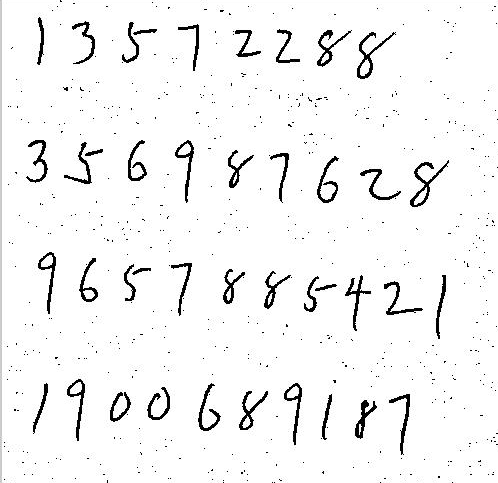 13572288
356987628
9657885421
1900689187